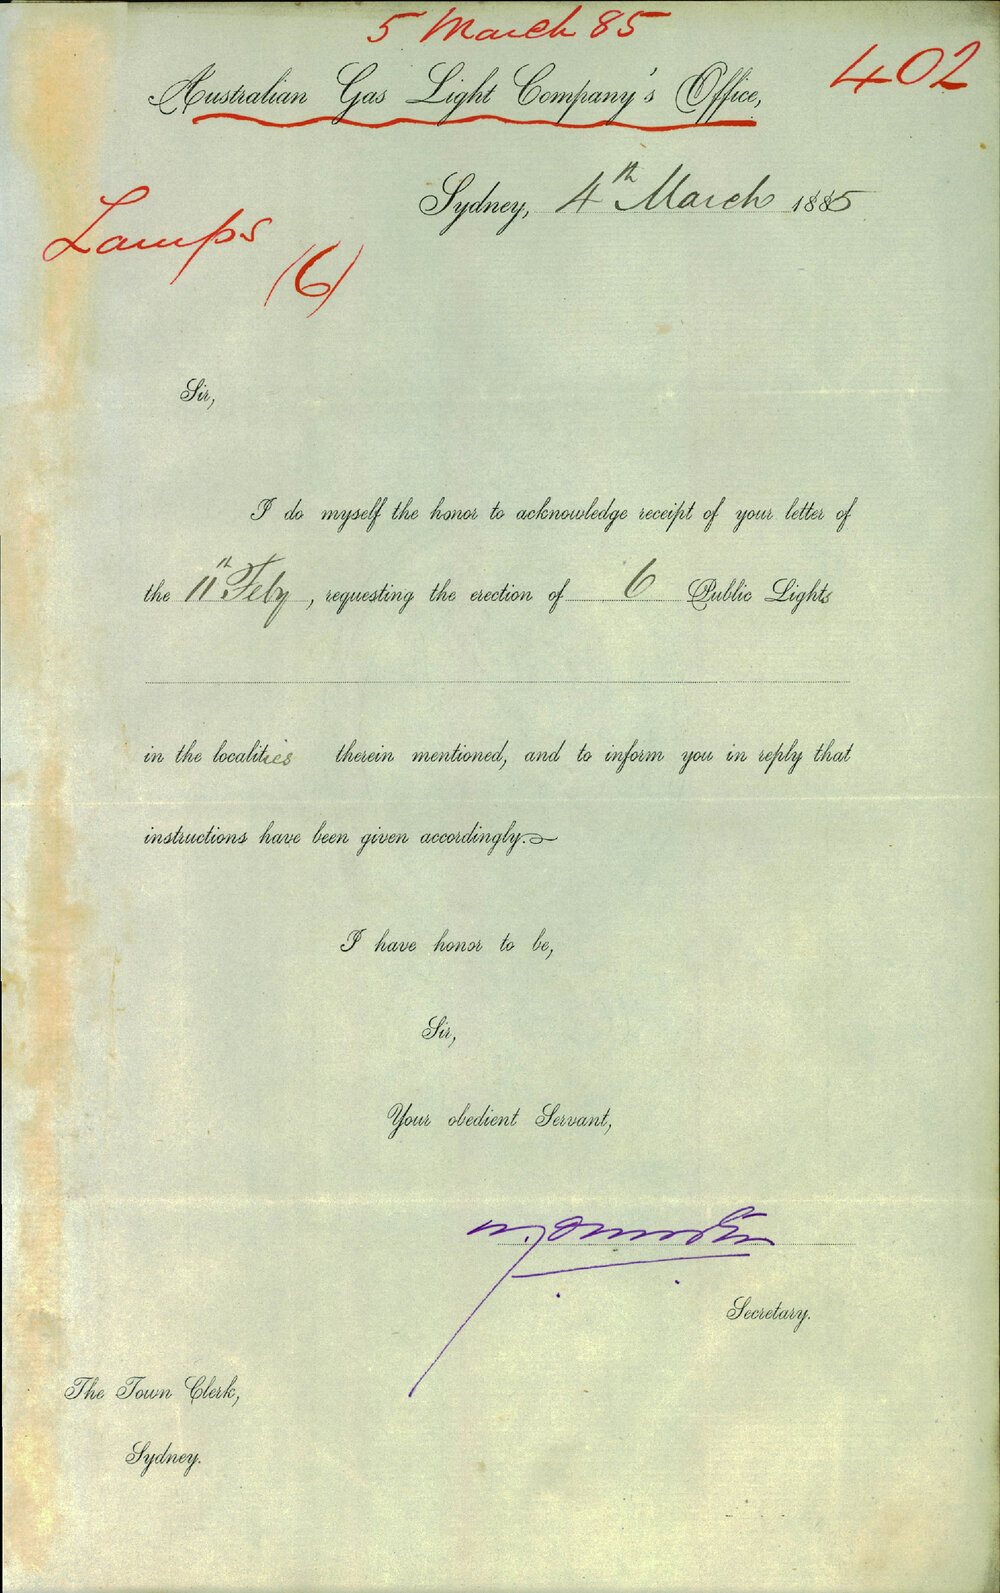 5 March 85
402
Australian Gas Light Company's Office,
Sydney, 4th March 1885
Lamps
(6)
Sir,
I do myself the honor to acknowledge receipt of your letter of
the 11th Feby, requesting the erection of 6 Public Lights
in the localities therein mentioned, and to inform you in reply that
instructions have been given accordingly.
I have honor to be,
Sir,
Your obedient Servant,
Secretary.
The Town Clerk,
Sydney.